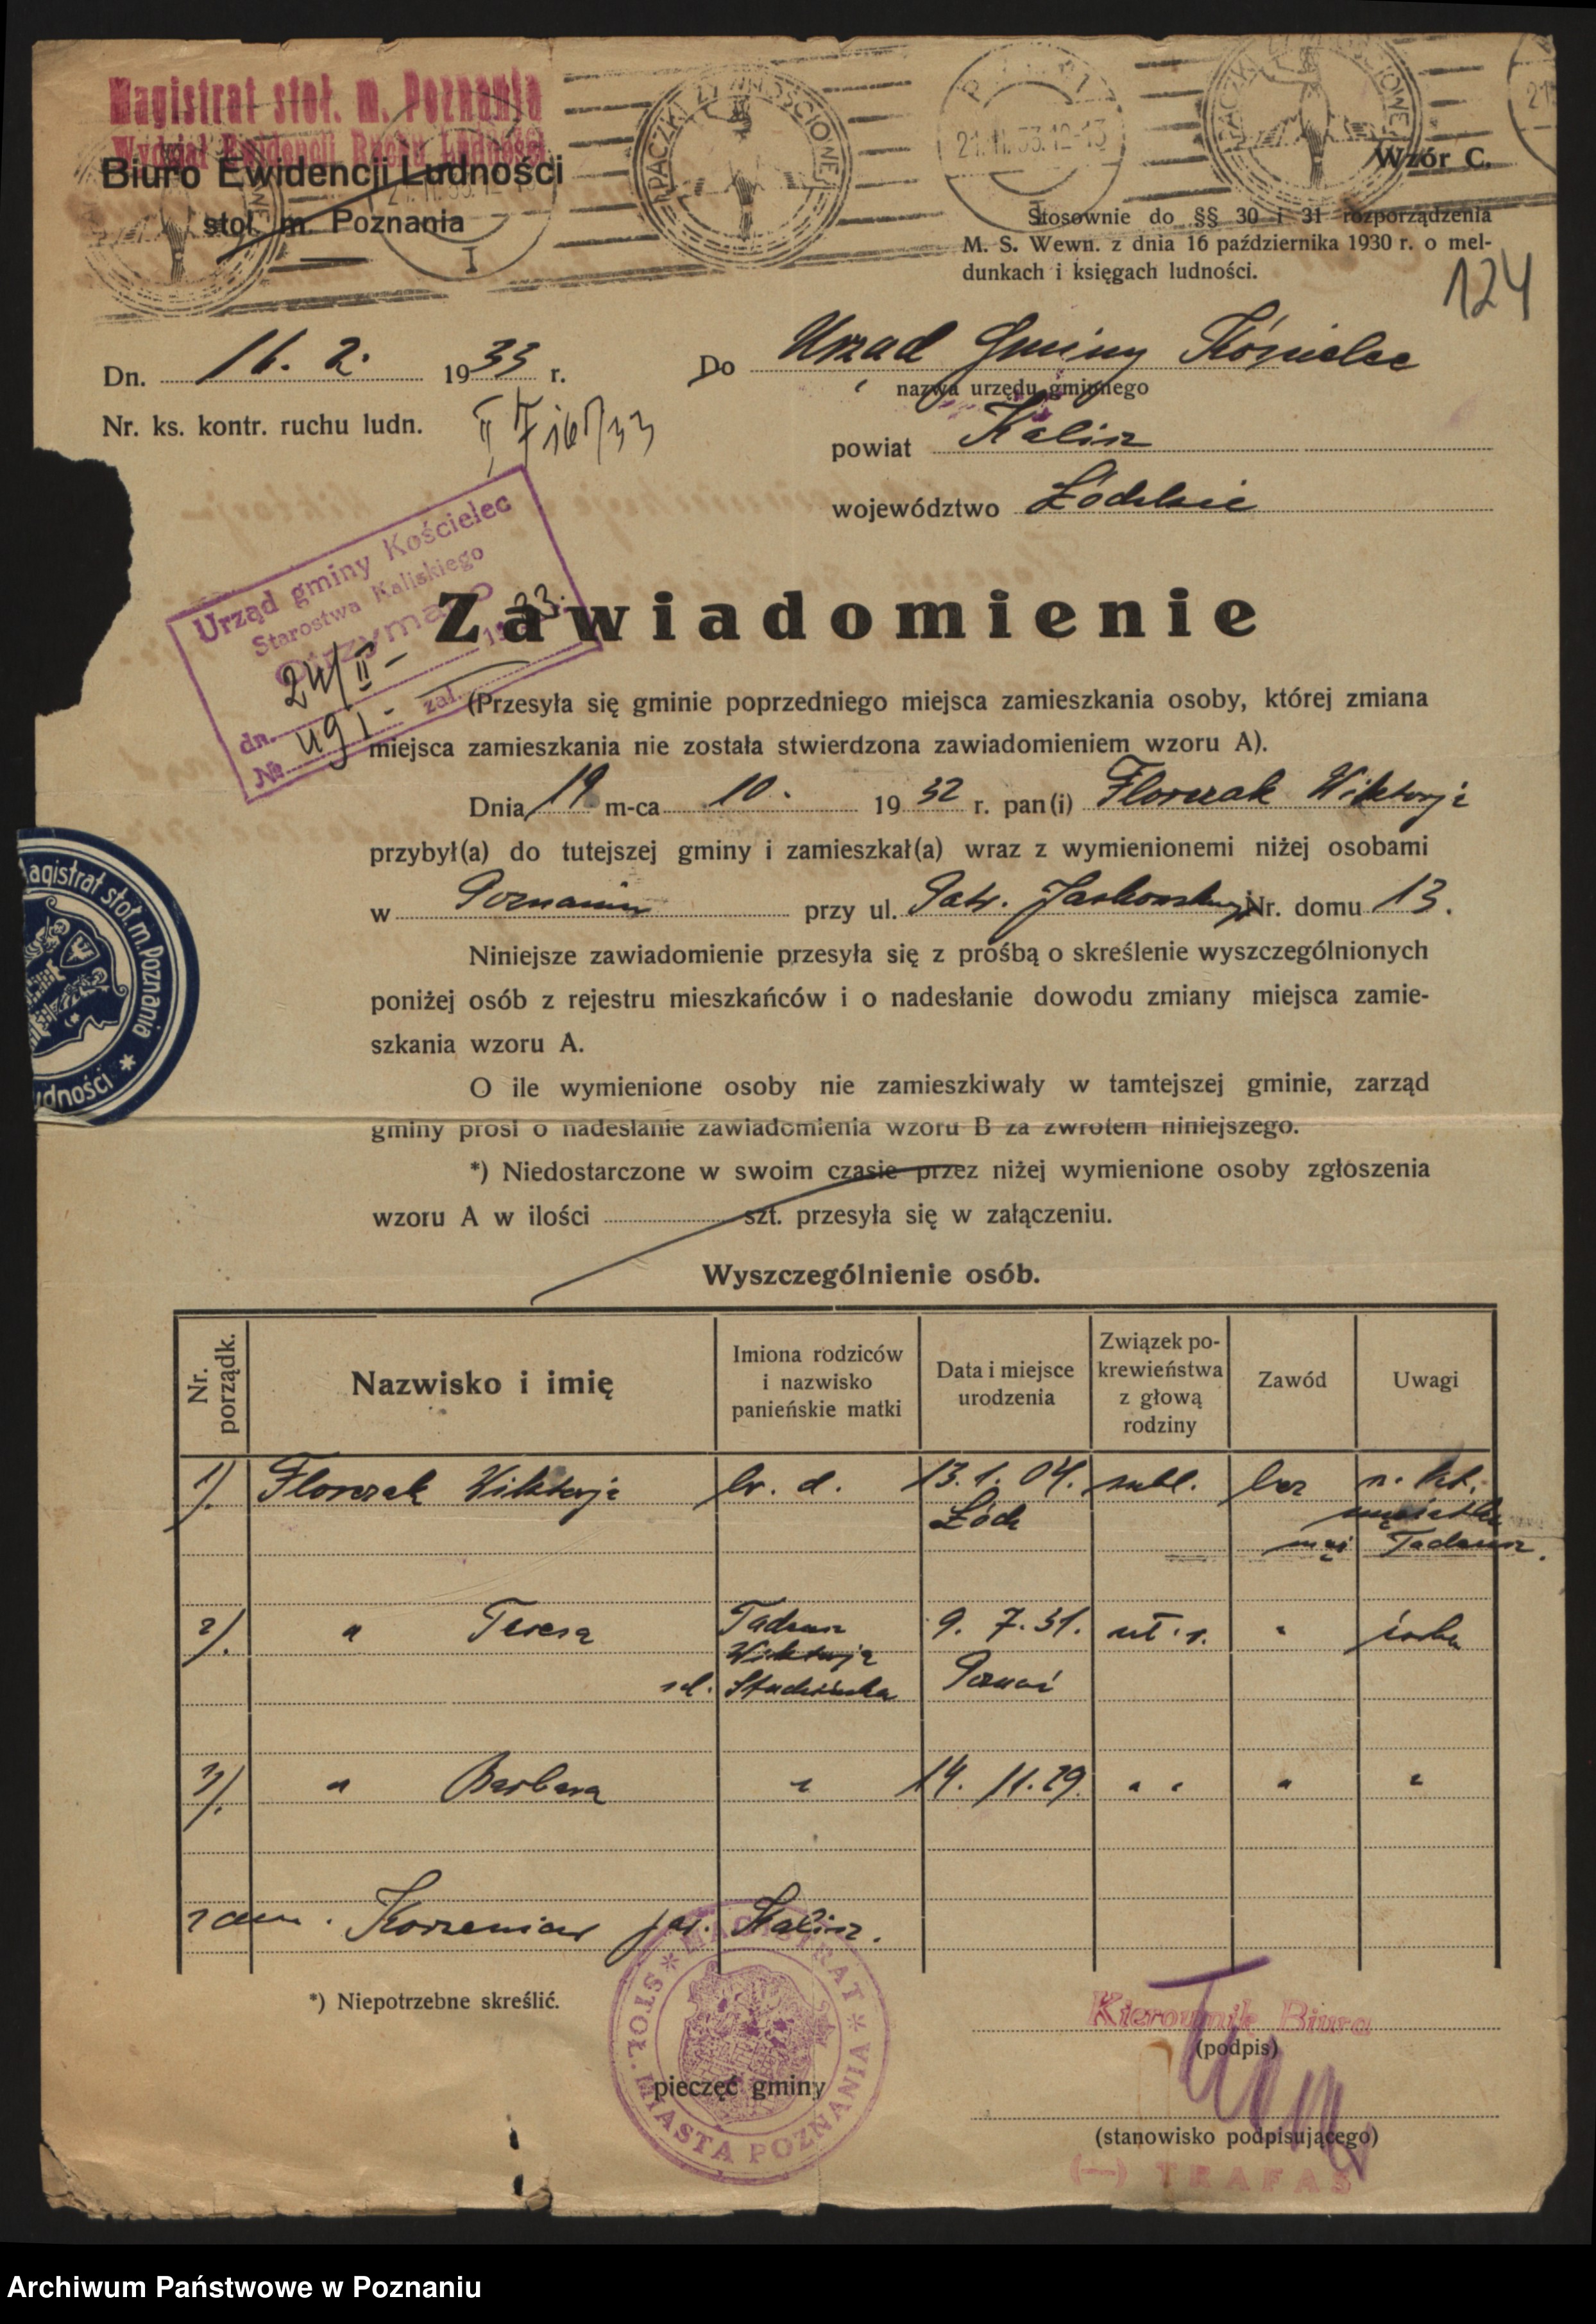 Magistrat stoł. m. Poznania
Wydział Ewidencji Ruchu Ludności
Biuro Ewidencji Ludności
stoł. m. Poznania
PACZKI ŻYWNOŚCIOWE
21.II.33.12-13
Wzór C.
Stosownie do §§ 30 i 31 rozporządzenia
M. S. Wewn. z dnia 16 października 1930 r. o mel-
dunkach i księgach ludności.
124
Dn. 16. 2. 1933 r.
Do Urzad Gminy
nazwa urzędu gminnego
Nr. ks. kontr. ruchu ludn.
powiat Kalisz
województwo Łódzkie
Urząd gminy Kościelec
Starostwa Kaliskiego
Otrzymano
dn. 24/II - 1933.
№ 491 - zał.
Zawiadomienie
(Przesyła się gminie poprzedniego miejsca zamieszkania osoby, której zmiana
miejsca zamieszkania nie została stwierdzona zawiadomieniem wzoru A).
Dnia 19 m-ca 10. 1932 r. pan(i) Florczak Wiktorja
przybył(a) do tutejszej gminy i zamieszkał(a) wraz z wymienionemi niżej osobami
w Poznaniu przy ul. Patr. Jackowskiego Nr. domu 13.
Niniejsze zawiadomienie przesyła się z prośbą o skreślenie wyszczególnionych
poniżej osób z rejestru mieszkańców i o nadesłanie dowodu zmiany miejsca zamie-
szkania wzoru A.
O ile wymienione osoby nie zamieszkiwały w tamtejszej gminie, zarząd
gminy prosi o nadesłanie zawiadomienia wzoru B za zwrotem niniejszego.
*) Niedostarczone w swoim czasie przez niżej wymienione osoby zgłoszenia
wzoru A w ilości szt. przesyła się w załączeniu.
Magistrat stoł. m. Poznania
Ludności
Wyszczególnienie osób.
Nr. porządk.
Nazwisko i imię
Imiona rodziców i nazwisko panieńskie matki
Data i miejsce urodzenia
Związek po-krewieństwa z głową rodziny
Zawód
Uwagi
1). Florczak Wiktorja br. d. 13.1.04. subl. bez n. kat.
Łódź
mąż Tadeusz.
2). " Teresa Tadeusz 9. 7. 31. " córka
Wiktorja
Poznań
3). " Barbara " 14. 11. 29. " " " "
zam. Korzeniew pow. Kalisz.
*) Niepotrzebne skreślić.
MAGISTRAT STOŁ. MIASTA POZNANIA
pieczęć gminy
Kierownik Biura
(podpis)
(stanowisko podpisującego)
(—) TRAFAS
Archiwum Państwowe w Poznaniu